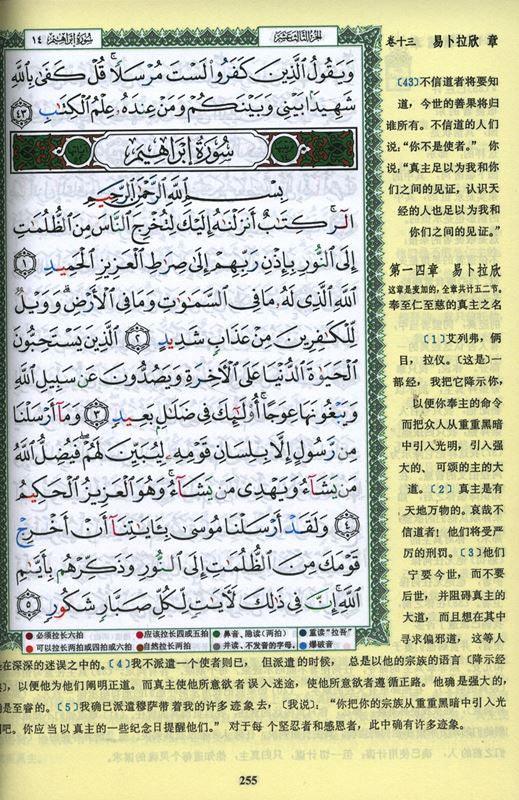 ١٤ سُورَةُ إِبْرَاهِيمَ
الجزء الثالث عشر
وَيَقُولُ ٱلَّذِينَ كَفَرُوا۟ لَسْتَ مُرْسَلًا ۚ قُلْ كَفَىٰ بِٱللَّهِ
شَهِيدًۢا بَيْنِى وَبَيْنَكُمْ وَمَنْ عِندَهُۥ عِلْمُ ٱلْكِتَٰبِ ٤٣
سُورَةُ إِبْرَاهِيمَ
بِسْمِ ٱللَّهِ ٱلرَّحْمَٰنِ ٱلرَّحِيمِ
الٓر ۚ كِتَٰبٌ أَنزَلْنَٰهُ إِلَيْكَ لِتُخْرِجَ ٱلنَّاسَ مِنَ ٱلظُّلُمَٰتِ
إِلَى ٱلنُّورِ بِإِذْنِ رَبِّهِمْ إِلَىٰ صِرَٰطِ ٱلْعَزِيزِ ٱلْحَمِيدِ ١
ٱللَّهِ ٱلَّذِى لَهُۥ مَا فِى ٱلسَّمَٰوَٰتِ وَمَا فِى ٱلْأَرْضِ ۗ وَوَيْلٌ
لِّلْكَٰفِرِينَ مِنْ عَذَابٍ شَدِيدٍ ٢ ٱلَّذِينَ يَسْتَحِبُّونَ
ٱلْحَيَوٰةَ ٱلدُّنْيَا عَلَى ٱلْءَاخِرَةِ وَيَصُدُّونَ عَن سَبِيلِ ٱللَّهِ
وَيَبْغُونَهَا عِوَجًا ۚ أُو۟لَٰٓئِكَ فِى ضَلَٰلٍۭ بَعِيدٍ ٣ وَمَآ أَرْسَلْنَا
مِن رَّسُولٍ إِلَّا بِلِسَانِ قَوْمِهِۦ لِيُبَيِّنَ لَهُمْ ۖ فَيُضِلُّ ٱللَّهُ
مَن يَشَآءُ وَيَهْدِى مَن يَشَآءُ ۚ وَهُوَ ٱلْعَزِيزُ ٱلْحَكِيمُ
٤ وَلَقَدْ أَرْسَلْنَا مُوسَىٰ بِـَٔايَٰتِنَآ أَنْ أَخْرِجْ
قَوْمَكَ مِنَ ٱلظُّلُمَٰتِ إِلَى ٱلنُّورِ وَذَكِّرْهُم بِأَيَّىٰمِ
ٱللَّهِ ۚ إِنَّ فِى ذَٰلِكَ لَءَايَٰتٍ لِّكُلِّ صَبَّارٍ شَكُورٍ ٥
必须拉长六拍 应该拉长四或五拍 鼻音、隐读（两拍） 重读“拉吾”
可以拉长两拍或四拍或六拍 自然拉长两拍 并读、不发音的字母。 爆破音
卷十三 易卜拉欣 章
〔43〕不信道者将要知
道，今世的善果将归
谁所有。不信道的人们
说，“你不是使者。” 你
说，“真主足以为我和你
们之间的见证，认识天
经的人也足以为我和
你们之间的见证。”
第一四章 易卜拉欣
这章是麦加的，全章共计五二节。
奉至仁至慈的真主之名
〔1〕艾列弗，俩
目，拉仪。〔这是〕一
部经，我把它降示你，
以便你奉主的命令
而把众人从重重黑暗
中引入光明，引入强
大的、可颂的主的大
道。〔2〕真主是有
天地万物的。哀哉不
信道者！他们将受严
厉的刑罚。〔3〕他们
宁要今世，而不要
后世，并阻碍真主的
大道，而且想在其中
寻求偏邪道，这等人
在深深的迷误之中的。〔4〕我不派遣一个使者则已，但派遣的时候，总是以他的宗族的语言〔降示经
，以便他为他们阐明正道。而真主使他所意欲者误入迷途，使他所意欲者遵循正路。他确是强大的，
是至睿的。〔5〕我确已派遣穆萨带着我的许多迹象去，〔我说〕：“你把你的宗族从重重黑暗中引入光
吧。你应当以真主的一些纪念日提醒他们。” 对于每个坚忍者和感恩者，此中确有许多迹象。
255